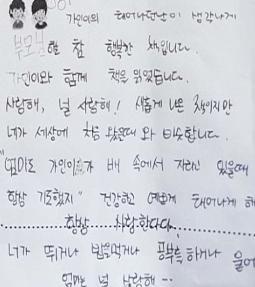 가인이의 태어났던날이 생각나게
부모님 해준 참 행복한 책입니다.
가인이와 함께 책을 읽었습니다.
사랑해, 널 사랑해! 새롭게 나온 책이지만
네가 세상에 처음 왔을때 와 비슷합니다.
"엄마도 가인이가 배 속에서 자라고 있을때
항상 기도했지" 건강하고 예쁘게 태어나게 해
항상 사랑한다다.
너가 뛰거나 밥을먹거나 공부를 하거나 울어
엄마는 널 사랑해 ~